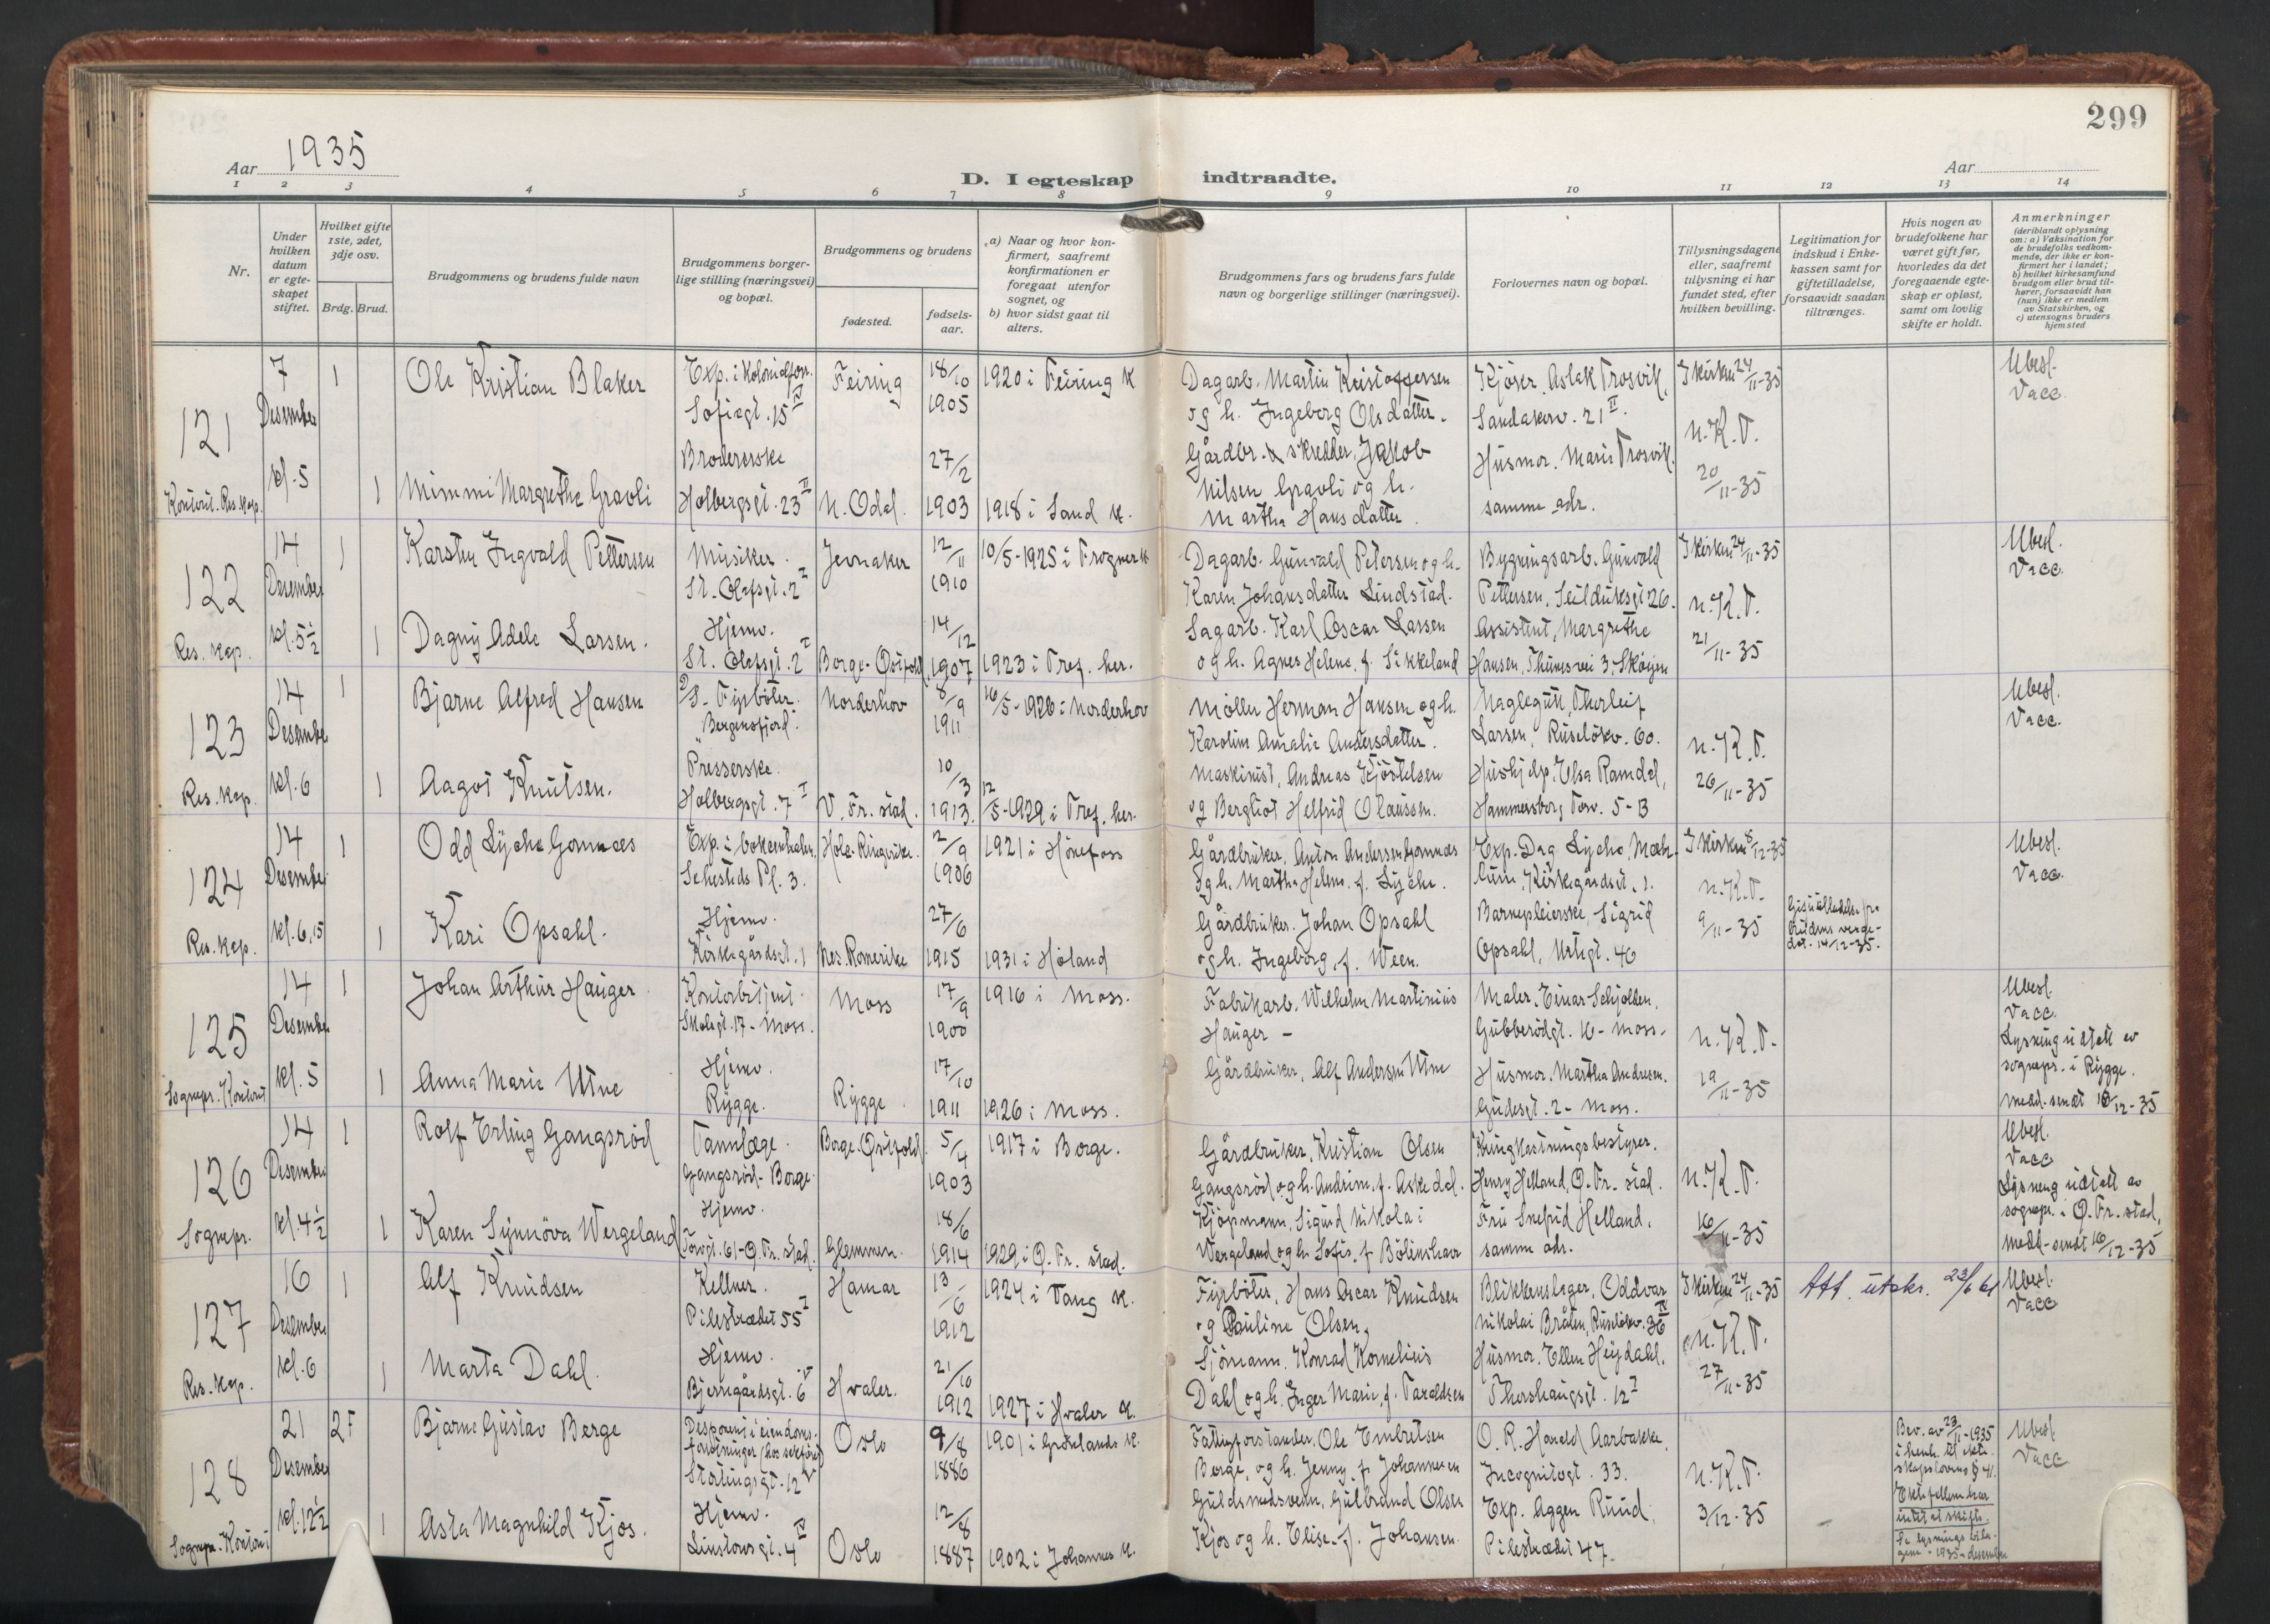 299
Aar 1935
D. I egteskap indtraadte.
Aar
1 2 3 4 5 6 7 8 9 10 11 12 13 14
Nr.
Under hvilken datum er egteskapet stiftet.
Hvilket gifte 1ste, 2det, 3dje osv.
Brdg. Brud.
Brudgommens og brudens fulde navn
Brudgommens borgerlige stilling (næringsvei) og bopæl.
Brudgommens og brudens
fødested.
fødselsaar.
a) Naar og hvor konfirmert, saafremt konfirmationen er foregaat utenfor sognet, og
b) hvor sidst gaat til alters.
Brudgommens fars og brudens fars fulde navn og borgerlige stillinger (næringsvei).
Forlovernes navn og bopæl.
Tillysningsdagene eller, saafremt tillysning ei har fundet sted, efter hvilken bevilling.
Legitimation for indskud i Enkekassen samt for giftetilladelse, forsaavidt saadan tiltrænges.
Hvis nogen av brudefolkene har været gift før, hvorledes da det foregaaende egteskap er opløst, samt om lovlig skifte er holdt.
Anmerkninger
(deriblandt oplysning om: a) Vaksination for de brudefolks vedkommende, der ikke er konfirmert her i landet;
b) hvilket kirkesamfund brudgom eller brud tilhører, forsaavidt han (hun) ikke er medlem av Statskirken, og
c) utensogns bruders hjemsted
121 7 Desember kl. 5
Kontoret. Res. kap.
1 Ole Kristian Blaker
Exp. i kolonialforr. Sofiegt. 15 IV
Feiring 18/10 1905 1920 i Feiring K
Dagarb. Martin Kristoffersen og h. Ingeborg Olsdatter.
Kjøsr. Aslak Trosvik, Sandakerv. 21 II.
I kirken 24/11-35
N.K.T. 20/11-35
Ubesl. Vacc.
1 Mimmi Margrethe Gravli
Brodererske Holbergsgt. 23 II
N. Odal. 27/2 1903 1918 i Sand K.
Gårdbr. & skredder, Jakob Nilsen Gravli og h. Martha Hansdatter.
Husmor. Marie Trosvik. samme adr.
122 14 Desember kl. 5 1/2
Res. kap.
1 Karsten Ingvald Pettersen
Musiker. St. Olafsgt. 2 I
Jevnaker 12/11 1910 10/5-1925 i Frogner K
Dagarb. Gunvald Petersen og h. Karen Johansdatter Lindstad.
Bygningsarb. Gunvald Pettersen, Seilduksgt 26.
I kirken 24/11-35
N.K.T. 21/11-35
Ubesl. Vacc.
1 Dagny Adele Larsen.
Hjemv. St. Olafsgt. 2 I
Borge-Østfold 14/12 1907 1923 i Tref. her.
Sagarb. Karl Oscar Larsen og h. Agnes Helene, f. Sikkeland
Assistent, Margrethe Hansen, Thunesvei 3-Skøyen
123 14 Desember kl. 6
Res. kap.
1 Bjarne Alfred Hansen
D/S. Fyrbøter. "Bergensfjord".
Norderhov 8/9 1911 16/5-1926 i Norderhov
Møller Herman Hansen og h. Karoline Amalie Andersdatter.
Naglegutt, Thorleif Larsen, Ruseløkv. 60.
N.K.T. 26/11-35
Ubesl. Vacc.
1 Aagot Knutsen.
Presserske. Holbergsgt. 7 I
V. Fr. stad. 10/3 1913. 12/5-1929 i Tref. her.
Maskinist, Andreas Kjöstelsen og Bergliot Helfrid Olaussen.
Hushjelp. Elsa Ramdal, Hammersborg Torv. 5-B
124 14 Desember kl. 6,15
Res. kap.
1 Odd Lyche Gomnæs
Exp. i boksentralen. Sehesteds Pl. 3.
Hole-Ringerike. 2/9 1906 1921 i Hønefoss
Gårdbruker, Anton Andersen Gomnæs og h. Martha Helene. f. Lyche.
Exp. Dag Lyche Mæhlum, Kirkegårdsgt. 1.
I kirken 8/12-35
N.K.T. 9/11-35
Ubesl. Vacc.
1 Kari Opsahl.
Hjemv. Kirkegårdsgt. 1
Nes. Romerike 27/6 1915 1931 i Høland
Gårdbruker. Johan Opsahl og h. Ingeborg, f. Ween.
Barnepleierske, Sigrid Opsahl, Urtegt. 46
Giftetilladelse fra brudens verge dat. 14/12-35.
125 14 Desember kl. 5
Sognepr. (Kontoret
1 Johan Arthur Hauger
Kontorbetjent. Skolegt. 17-Moss.
Moss 17/9 1900 1916 i Moss.
Fabrikarb. Wilhelm Martinius Hauger -
Maler. Einar Schjolben. Gubberødgt. 16-Moss-
N.K.T. 19/11-35
Ubesl. Vacc.
Lysning utstett av sognepr. i Rygge. Medd. sendt 18/12-35
1 Anna Marie Utne
Hjemv. Rygge.
Rygge. 17/10 1911 1926 i Moss.
Gårdbruker, Alf Andersen Utne
Husmor. Martha Andresen. Gudesgt. 2-Moss.
126 14 Desember kl. 4 1/2
Sognepr.
1 Rolf Erling Gangsrød
Tannlæge. Gangsrød-Borge.
Borge. Østfold. 5/4 1903 1917 i Borge.
Gårdbruker, Kristian Olsen Gangsrød og h. Andrine, f. Askedal.
Kringkastningsbestyrer. Henry Helland, Ø. Fr. stad.
N.K.T. 16/11-35
Ubesl. Vacc
Lysning utstett av sognepr. i Ø. Fr. stad, Medd. sendt 16/12-35
1 Karen Synnöva Wergeland
Hjemv. Torvgt. 61-Ø. Fr. stad.
Glemmen. 18/6 1914 1929 i Ø. Fr. stad.
Kjøpmann, Sigurd Nikolai Wergeland og h. Sofie, f. Bölinshavr
Fru Snefrid Helland, samme adr.
127 16 Desember kl. 6
Res. kap.
1 Alf Knudsen
Kellner. Pilestrædet 55 I
Hamar 13/6 1912 1924 i Vang K.
Fyrbøter, Hans Oscar Knudsen og Pauline Olsen.
Blikkenslager, Oddvar Nikolai Bråten, Ruseløkv. 36 IV
I kirken 24/11-35
N.K.T. 27/11-35
Att. utskr. 23/6 61
Ubesl. Vacc
1 Marta Dahl.
Hjemv. Bjerregårdsgt. 6 V
Hvaler. 21/10 1912 1927 i Hvaler K.
Sjömann, Konrad Kornelius Dahl og h. Inger Marie, f. Taraldsen
Husmor. Ellen Heydahl, Thorshaugsgt. 12 I
128 21 Desember kl. 12 1/2
Sognepr. Kontoret
2f Bjarne Gustav Berge
Disponent i eiendoms- Stortingsgt. 12 V
Oslo 9/8 1886 1901 i Grønlands K.
Fattigforstander, Ole Embretsen Berge, og h. Jenny, f. Johannesen
O. R. Harald Aarbakke, Incognitogt. 33.
N.K.T. 3/12-35
Bev. av 23/11-1935 i henh. til ekteskapslovens § 41. Ektefellene har intet at skifte. Se lysningsbilagene-1935-desember
Ubesl. Vacc
1 Asta Magnhild Kjos.
Hjemv. Linstowsgt. 4 IV
Oslo 12/8 1887 1902 i Johannes K.
Guldsmedsvenn, Gulbrand Olsen Kjos og h. Elise. f. Johansen
Exp. Aggen Ruud, Pilestrædet 47.